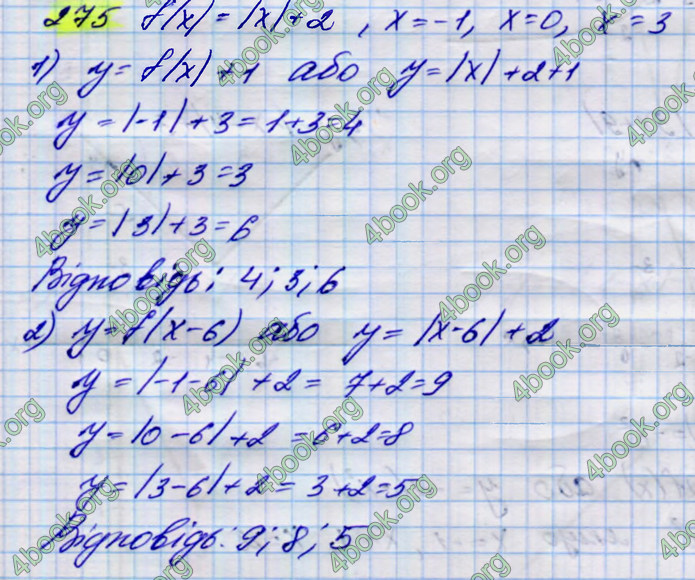 275 f(x) = |x|+2 , x=-1, x=0, x=3
1) y= f(x)+1 або y=|x|+2+1
y = |-1|+3 = 1+3=4
y = |0|+3=3
y = |3|+3=6
Відповідь: 4; 3; 6
2) y=f(x-6) або y= |x-6|+2
y = |-1-6|+2= 7+2=9
y= |0-6|+2 =6+2=8
y= |3-6|+2= 3+2=5
Відповідь: 9; 8; 5
4book.org